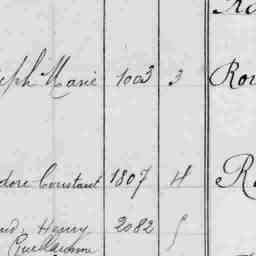 Ro
eph Marie 1003 3 Rou
dore Constant 1807 4 R
nd, Henry 2082 5
Guillaume